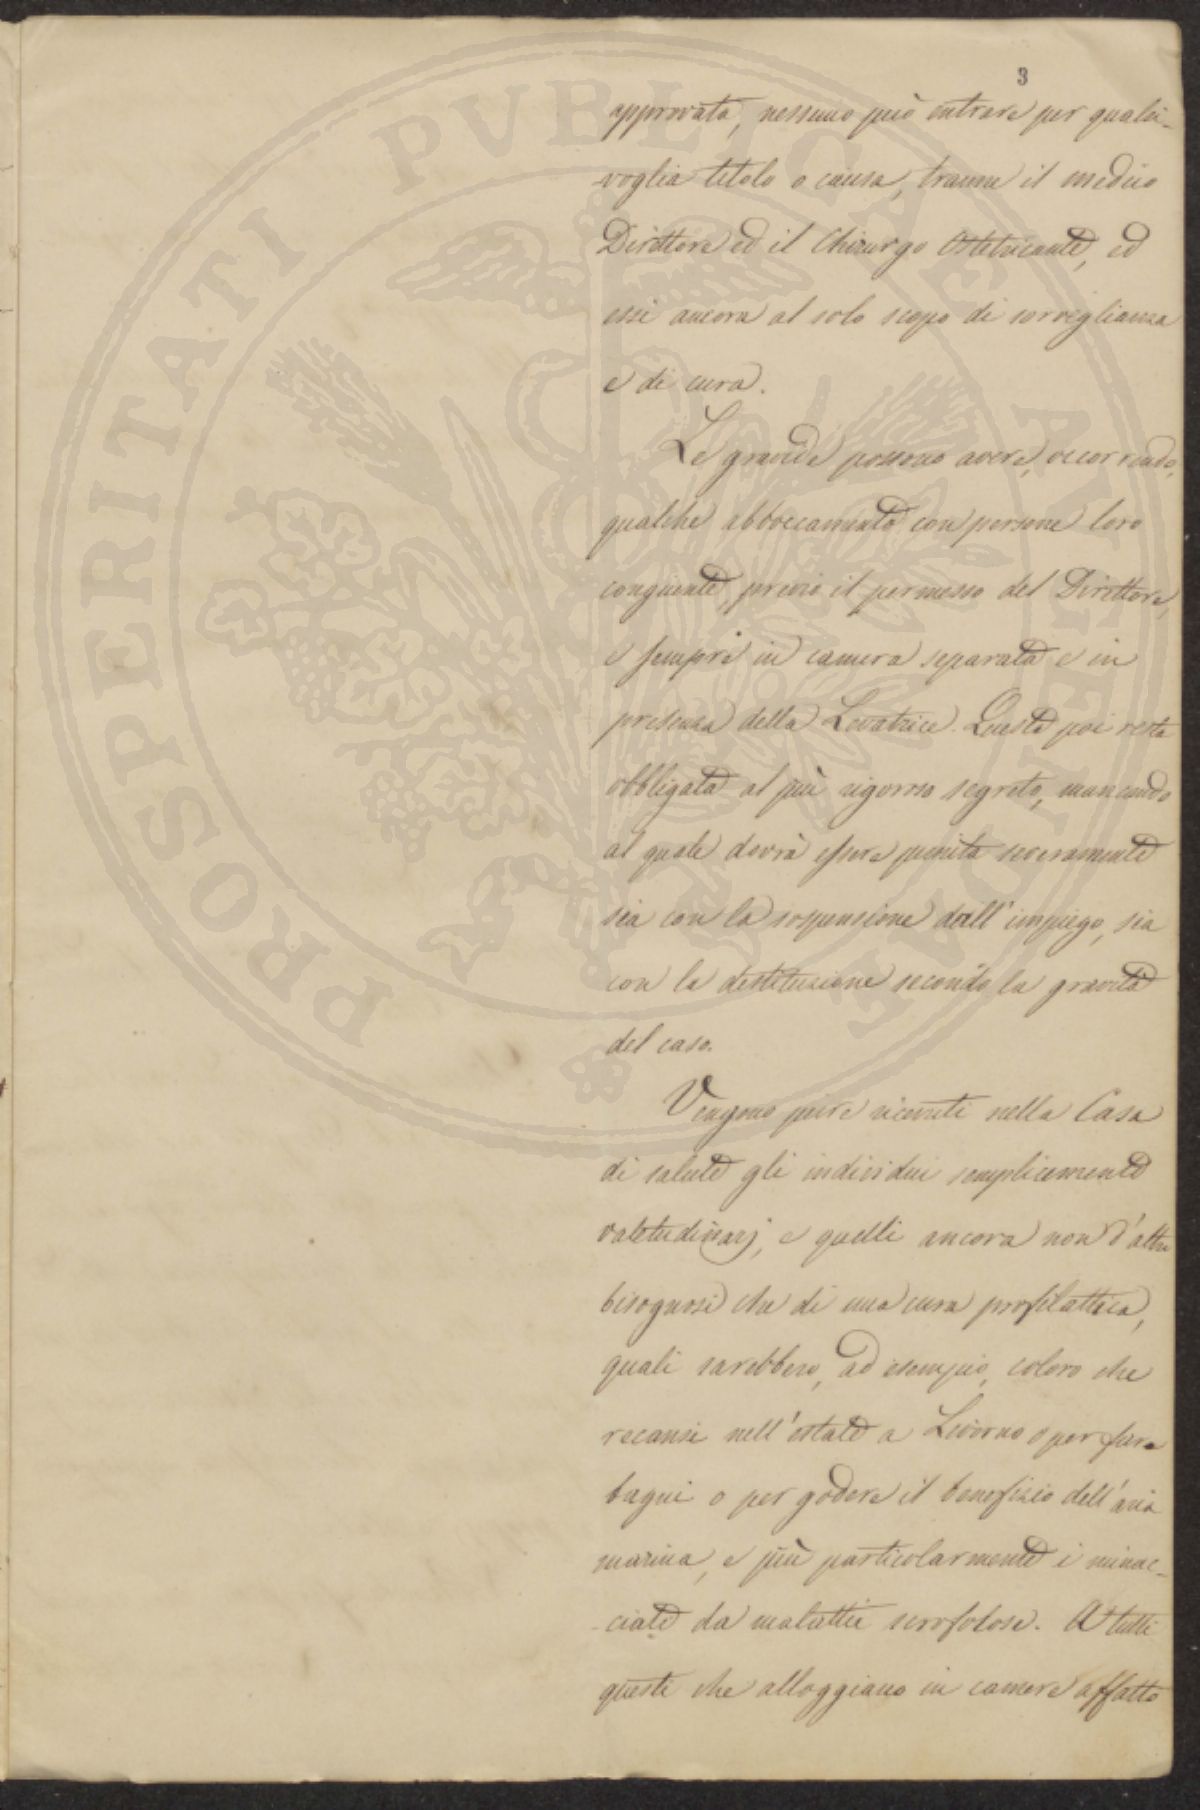 3
approvata, nessuno può entrare per qualsi-
voglia titolo o causa, tranne il medico
Direttore ed il Chirurgo Ostetricante, ed
essi ancora al solo scopo di sorveglianza
e di cura.
Le gravide possono avere, occorrendo,
qualche abboccamento con persone loro
congiunte, previo il permesso del Direttore,
e sempre in camera separata e in
presenza della Levatrice. Questa poi resta
obbligata al più rigoroso segreto, mancando
al quale dovrà essere punita severamente
sia con la sospensione dall'impiego, sia
con la destituzione secondo la gravità
del caso.
Vengono pure ricevuti nella Casa
di salute gli individui semplicemente
valetudinarj, e quelli ancora non d'altro
bisognosi che di una cura profilattica,
quali sarebbero, ad esempio, coloro che
recansi nell'estate a Livorno o per fare
bagni o per godere il benefizio dell'aria
marina, e più particolarmente i minac-
-ciati da malattie scrofolose. A tutti
questi che alloggiano in camere affatto
PROSPERITATI PVBLICAE AVGENDAE